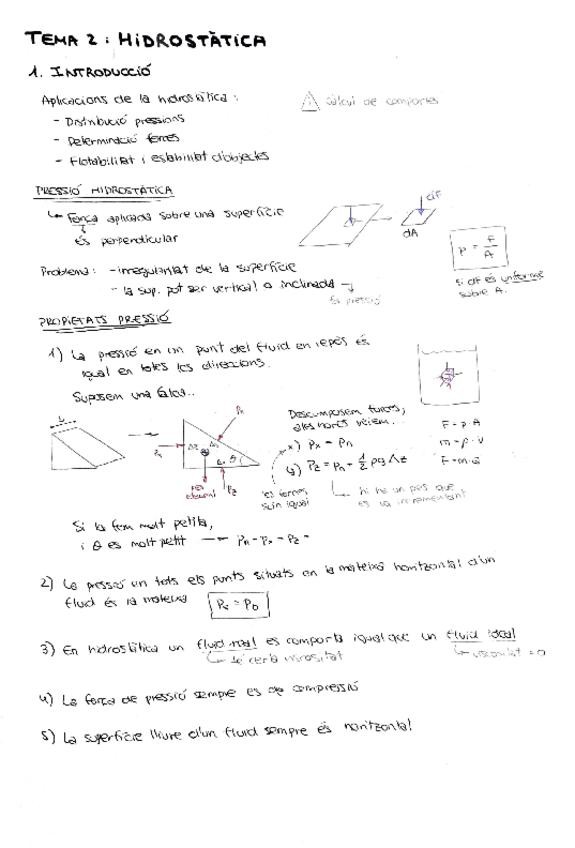 TEMA 2: HIDROSTÀTICA
1. INTRODUCCIÓ
Aplicacions de la hidrostàtica:
- Distribució pressions
- Determinació forces
- Flotabilitat i estabilitat d'objectes
càlcul de comportes
PRESSIÓ HIDROSTÀTICA
Força aplicada sobre una superfície
és perpendicular
dF
dA
P = F/A
si dF és uniforme
sobre A.
Problema: - irregularitat de la superfície
- la sup. pot ser vertical o inclinada
pressió
PROPIETATS PRESSIÓ
1) La pressió en un punt del fluid en repès és
igual en totes les direccions.
Suposem una falca..
Descomposem forces,
aleshores veiem...
x) Px = Pn
y) Pz = Pn - 1/2 ρg Δz
F = p · A
m = ρ · V
F = m · a
Pn
Pz
pes
element
hi ha un pes que
Si la fem molt petita,
i θ es molt petit → Pn = Px = Pz =
2) La pressió en tots els punts situats en la mateixa horitzontal d'un
fluid és la mateixa
3) En hidrostàtica un fluid real es comporta igual que un fluid ideal
té certa viscositat
viscositat = 0
4) La força de pressió sempre es de compressió
5) La superfície lliure d'un fluid sempre és horitzontal